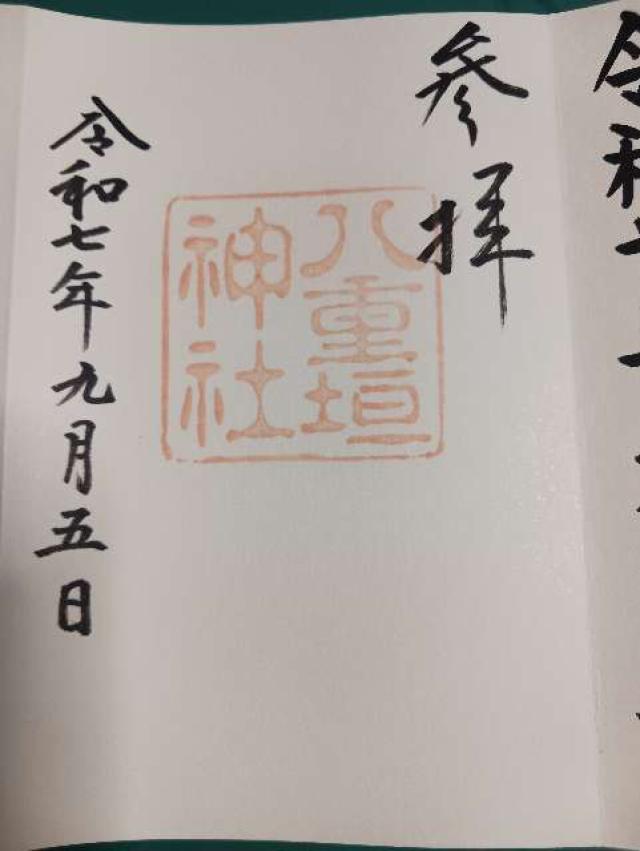 令和
参拝
八重垣
神社
令和七年九月五日